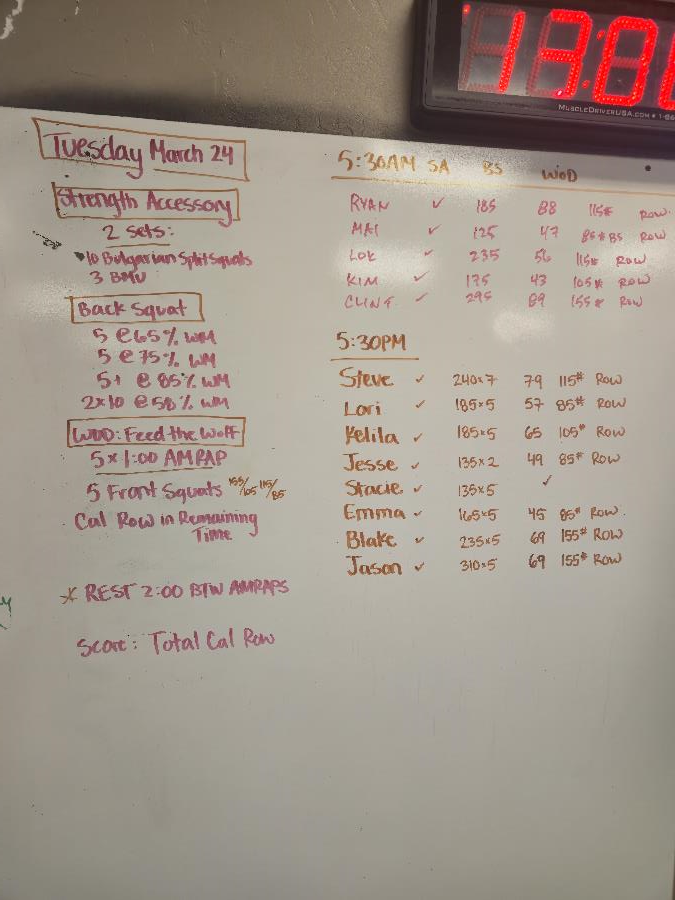 13:0
MUSCLEDRIVERUSA.COM
Tuesday March 24
Strength Accessory
2 sets:
10 Bulgarian Split Squats
3 BMU
Back Squat
5 @ 65% WM
5 @ 75% WM
5+ @ 85% WM
2x10 @ 58% WM
WOD: Feed the Wolf
5 x 1:00 AMRAP
5 Front Squats 155/105 115/85
Cal Row in Remaining
Time
* REST 2:00 BTW AMRAPS
Score: Total Cal Row
5:30AM SA BS WOD
RYAN ✓ 185 88 115# ROW.
MAI ✓ 125 47 85# BS ROW
LOK ✓ 235 56 115# ROW
KIM ✓ 175 43 105# ROW
CLINT ✓ 295 89 155# ROW
5:30PM
Steve ✓ 240x7 79 115# ROW
Lori ✓ 185x5 57 85# ROW
Kelila ✓ 185x5 65 105# ROW
Jesse ✓ 135x2 49 85# ROW
Stacie ✓ 135x5 ✓
Emma ✓ 165x5 45 85# ROW.
Blake ✓ 235x5 69 155# ROW
Jason ✓ 310x5 69 155# ROW